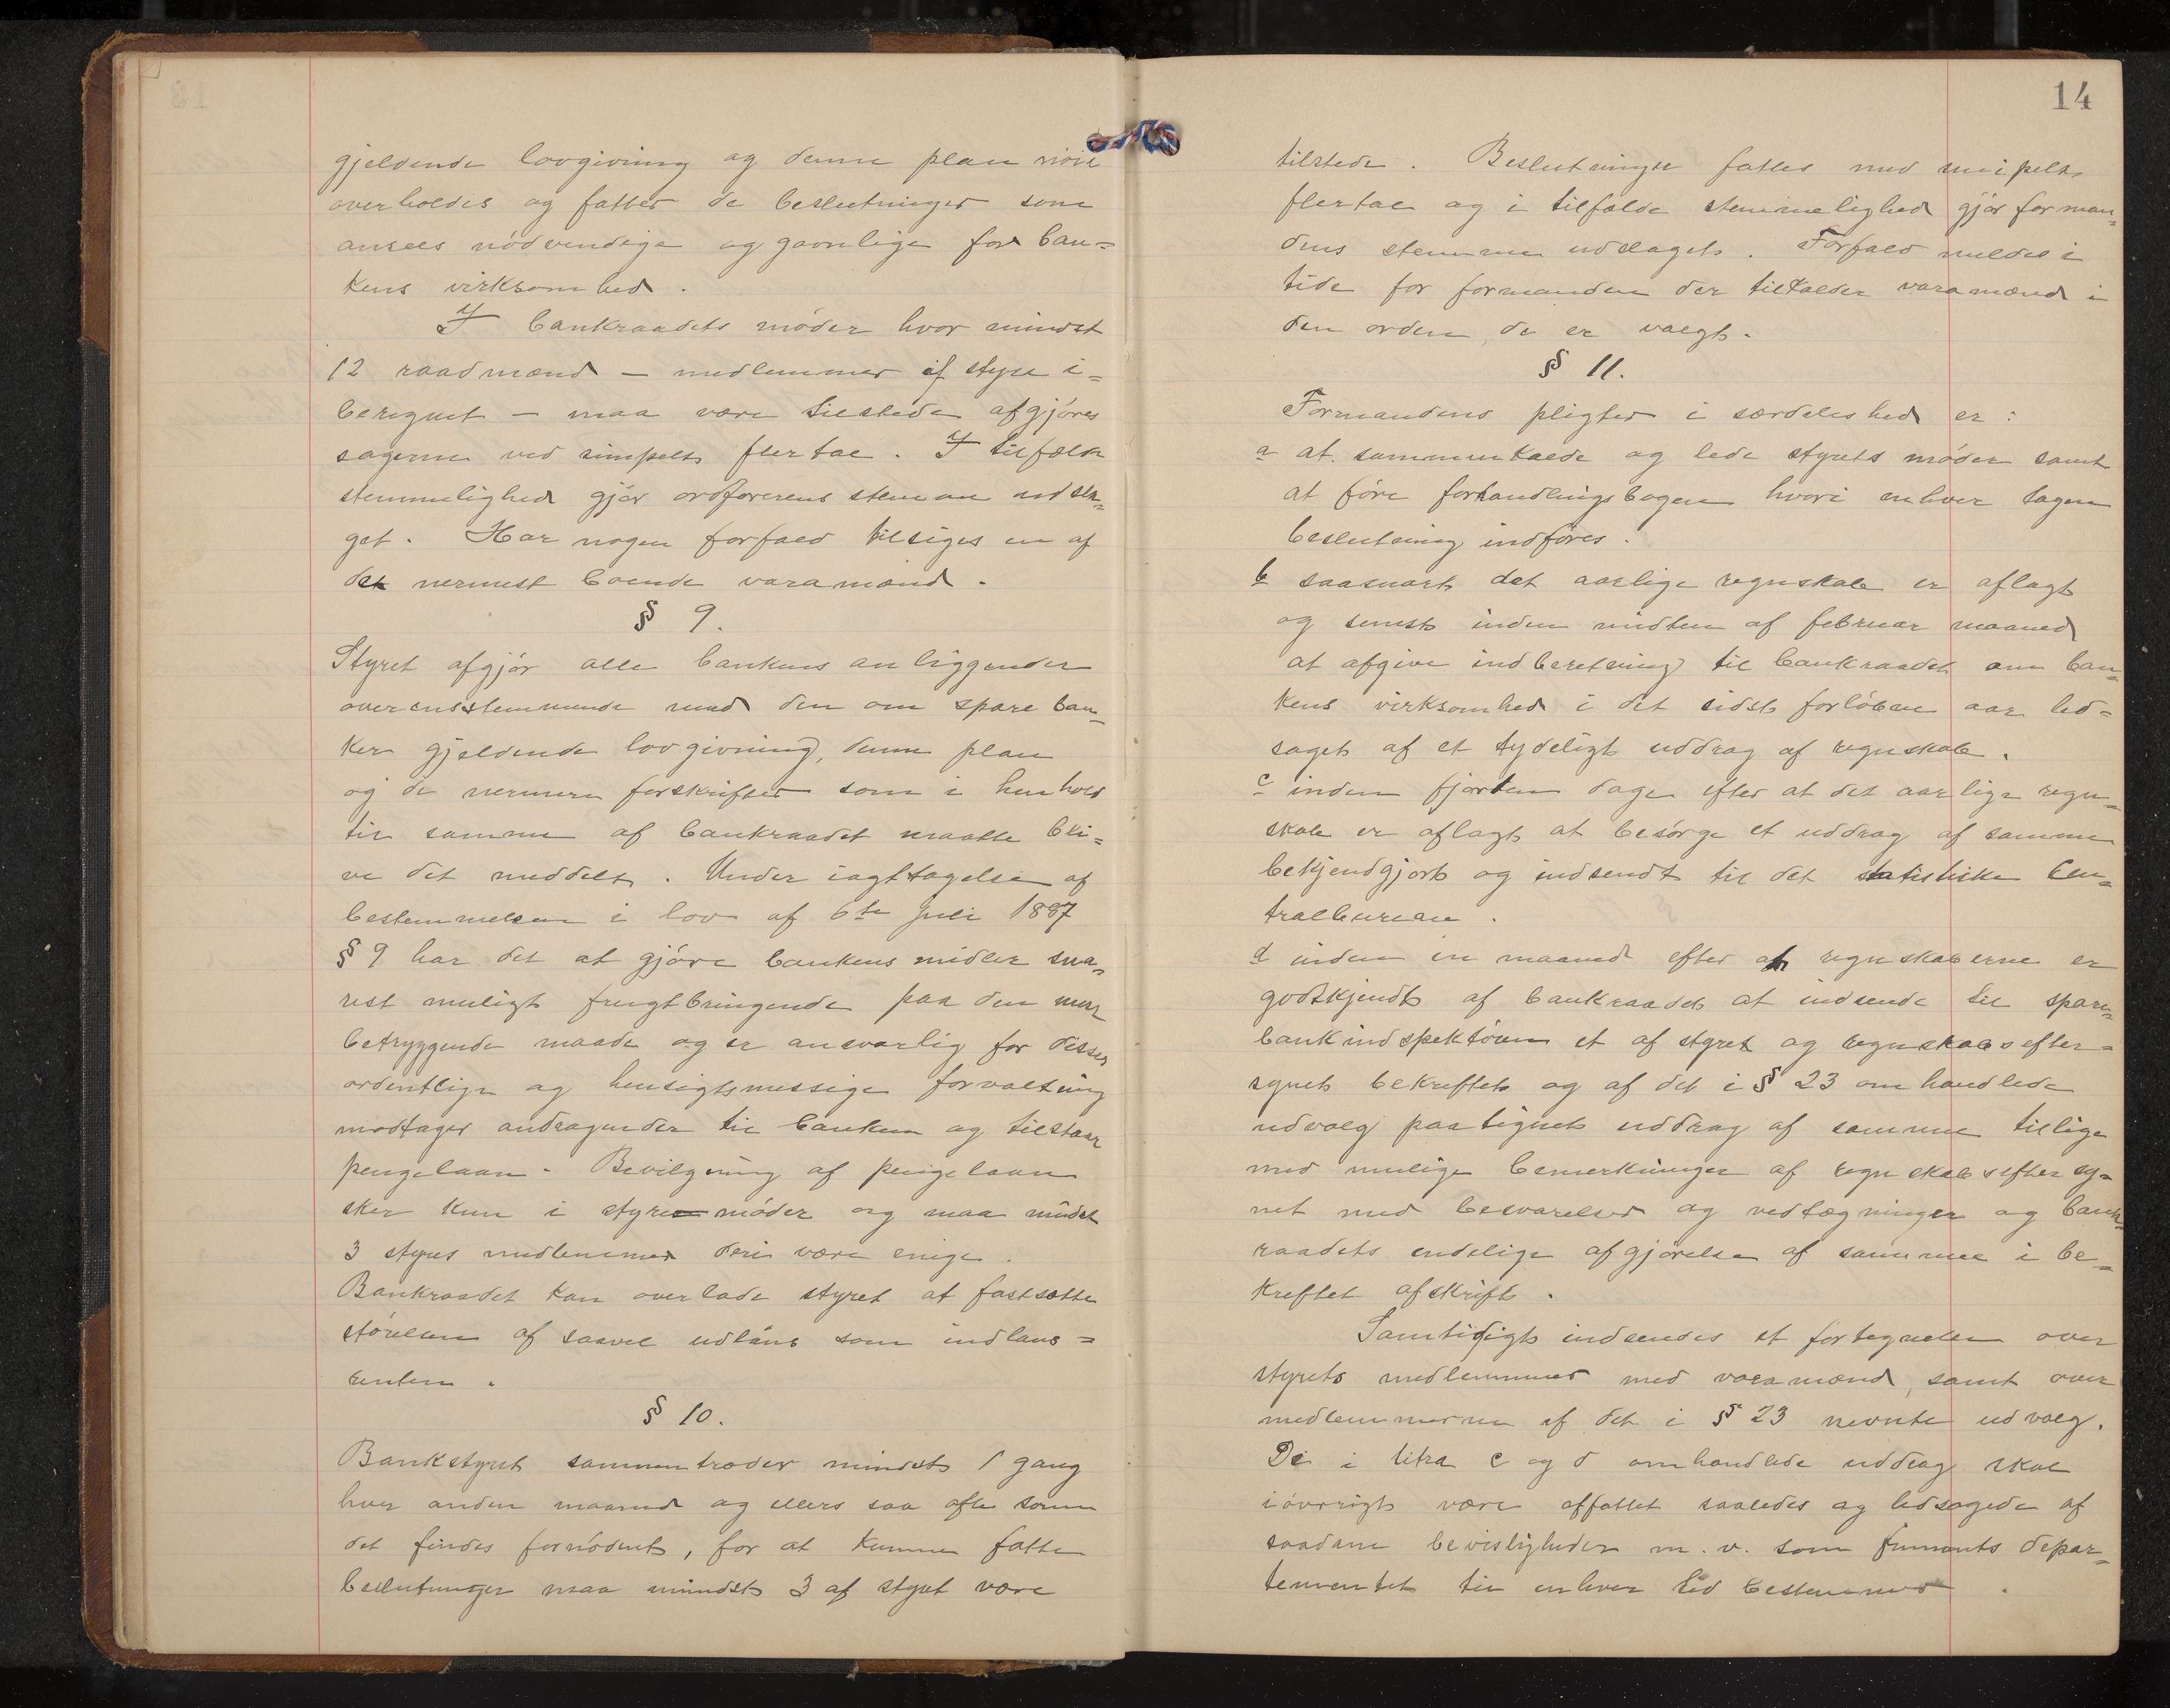 gjeldende lovgivning og denne plan nöie
overholdes og fatter de beslutninger som
ansees nödvendige og gavnlige for ban=
kens virksomhed.
I bankraadets möder hvor mindst
12 raadmænd – medlemmer af styre i=
beregnet – maa være tilstede afgjöres
sagerne ved simpelt flertal. I tilfælde
stemmelighed gjör ordförerens stemme udsla=
get. Har nogen forfald tilsiges en af
de nermest boende varamænd.
§ 9.
Styret afgjör alle bankens anliggender
overensstemmende med den om spareban=
ker gjeldende lovgivning, denne plan
og de nermere forskrifter som i henhold
til samme af bankraadet maatte bli=
ve det meddelt. Under iagttagelse af
bestemmelsen i lov af 6te juli 1887
§ 9 har det at gjöre bankens midler sna=
rest muligt frugtbringende paa den mest
betryggende maade og er ansvarlig for disses
ordentlige og hensigtsmessige forvaltning
modtager andragender til banken og tilstaar
pengelaan. Bevilgning af pengelaan
sker kun i styremöder og maa mindst
3 styresmedlemmer deri være enige.
Bankraadet kan overlade styret at fastsætte
störelsen af saavel udlåns som indlans=
renten.
§ 10.
Bankstyret sammentræder mindst 1 gang
hver anden maaned og ellers saa ofte som
det findes fornödent, for at kunne fatte
beslutninger maa mindst 3 af styret være
14
tilstede. Beslutninger fattes med simpelt
flertal og i tilfælde stemmelighed gjör forman=
dens stemme udslaget. Forfald meldes i
tide for formanden der tilkalder varamænd i
den orden, de er valgt.
§ 11.
Formandens pligter i særdeleshed er:
a at sammenkalde og lede styrets möder samt
at före forhandlingsbogen hvori enhver tagen
beslutning indföres.
b saasnart det aarlige regnskab er aflagt
og senest inden midten af februar maaned
at afgive indberetning til bankraadet om ban=
kens virksomhed i det sidst forlöbne aar led=
saget af et tydeligt uddrag af regnskab.
c inden fjorten dage efter at det aarlige regn=
skab er aflagt at besörge et uddrag af samme
bekjendgjort og indsendt til det statistiske Cen=
tralbureau.
d inden en maaned efter at regnskaberne er
godkjendt af bankraadet at indsende til spare=
bankindspektören et af styret og regnskabsefter=
synet bekreftet og af det i § 23 omhandlede
udvalg paategnet uddrag af samme tillige
med mulige bemerkninger af regnskabseftersy=
net med besvarelser og vedtægninger og bank=
raadets endelige afgjörelse af samme i be=
kreftet afskrift.
Samtidigt indsendes et fortegnelse over
styrets medlemmer med varamænd, samt over
medlemmerne af det i § 23 nevnte udvalg.
De i litra c og d omhandlede uddrag skal
iövrigt være affattet saaledes og ledsagede af
saadane bevisligheder m.v. som finants depar=
tementet til enhver tid bestemmer.